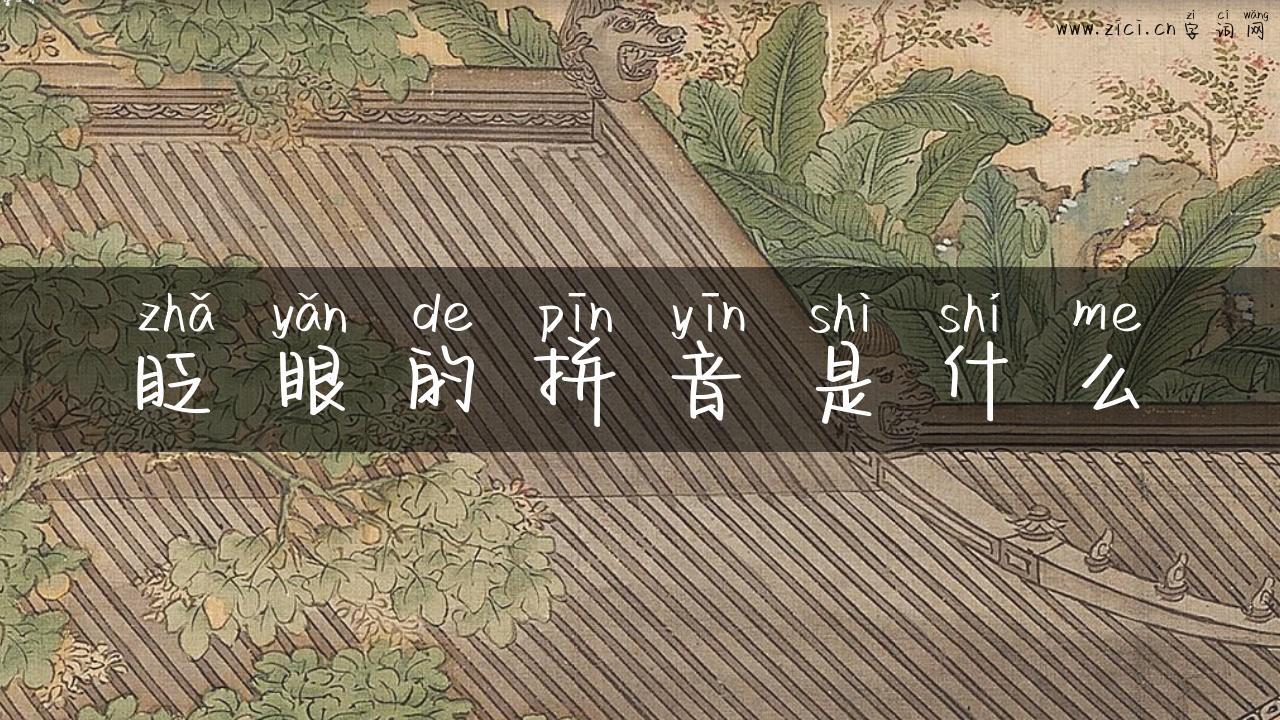 zì cí wǎng
www.zici.cn 字词网
zhǎ yǎn de pīn yīn shì shí me
眨眼的拼音是什么